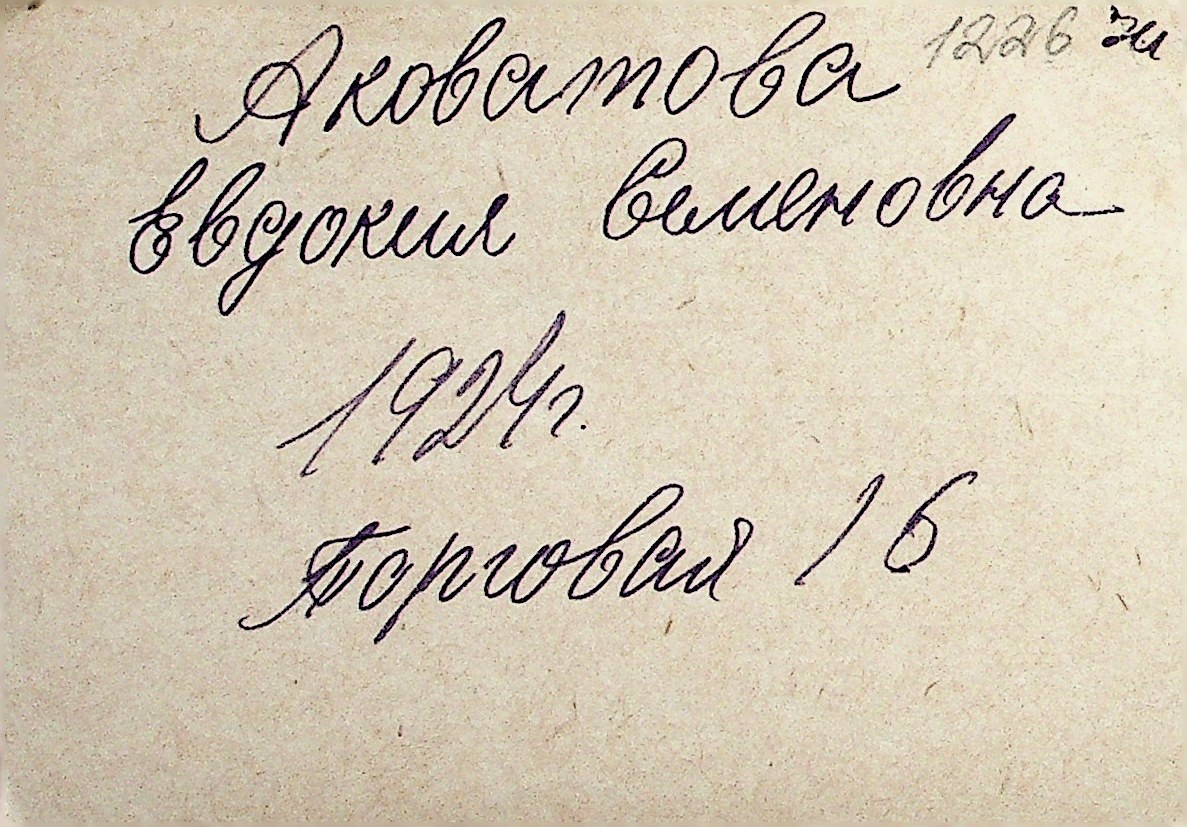 Аковатова 1226
Евдокия Семеновна
1924г.
Торговая 16